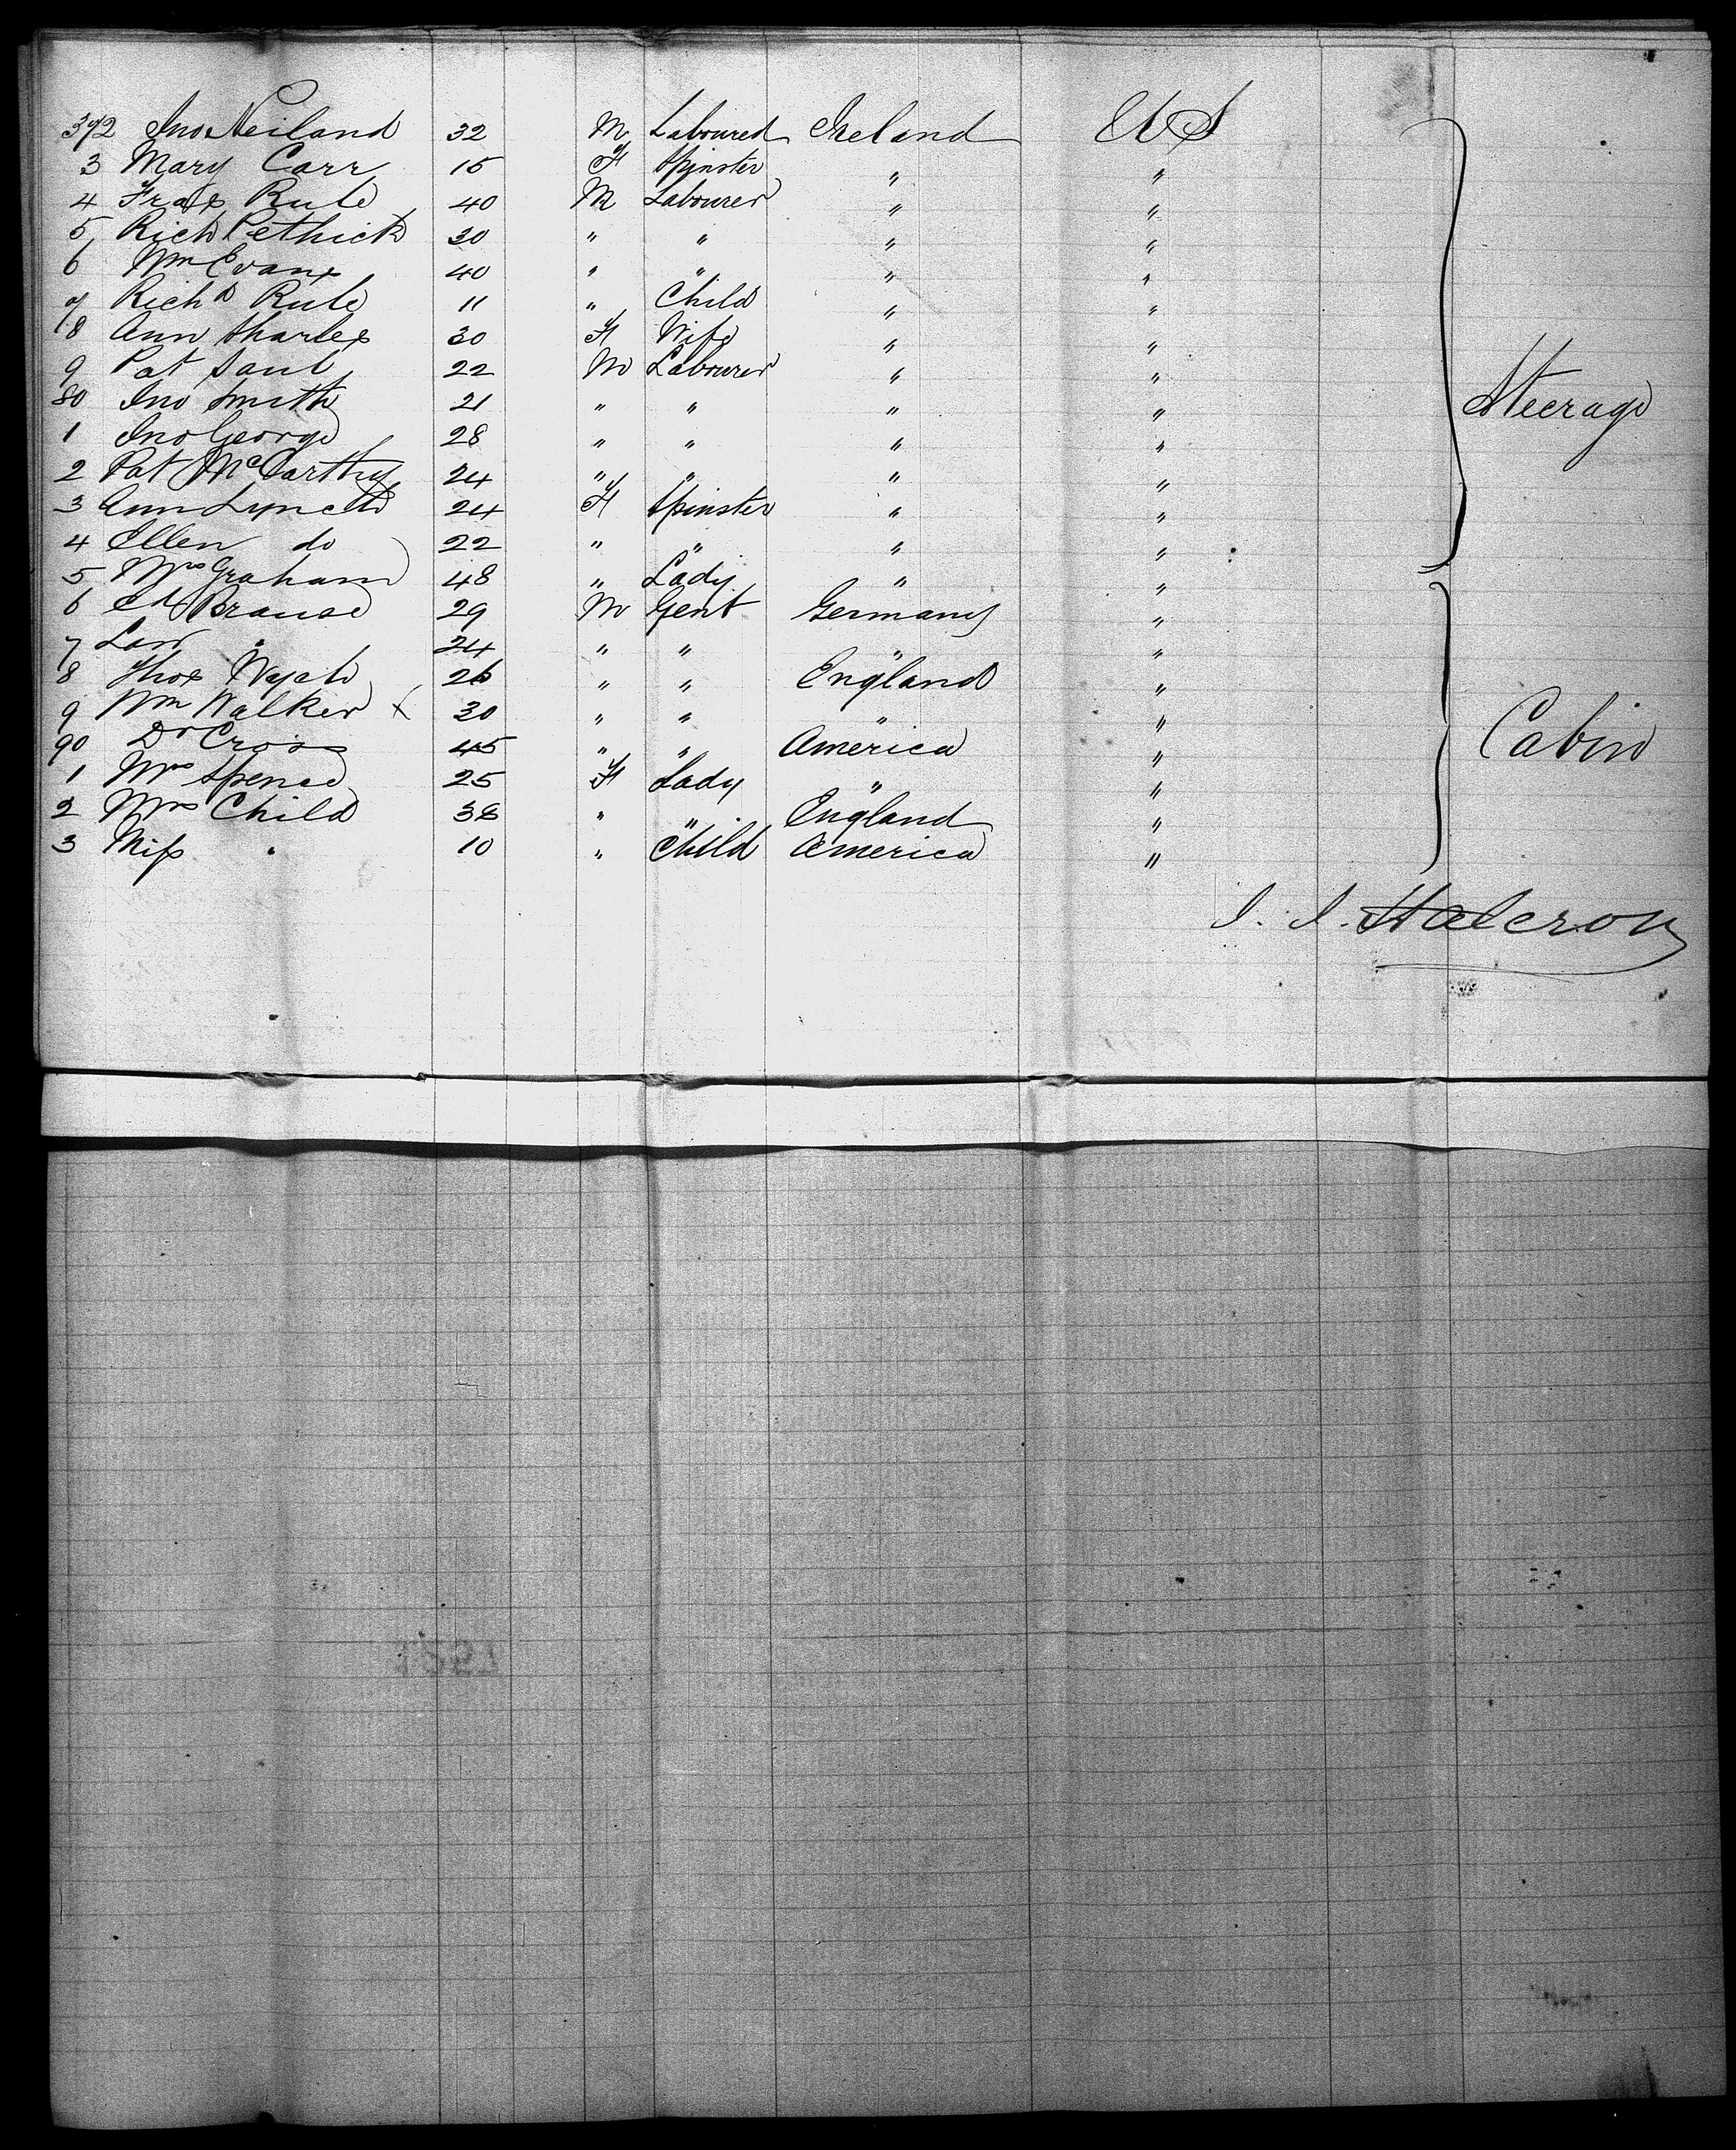 372 Jno Neiland 32 M Labourer Ireland U S
3 Mary Carr 15 F Spinster " "
4 Fras Rule 40 M Labourer " "
5 Rich Pethick 30 " " " "
6 Wm Evans 40 " " " "
7 Richd Rule 11 " Child " "
8 Ann Sharles 30 F Wife " "
9 Pat Saul 22 M Labourer " "
80 Jno Smith 21 " " " "
1 Jno George 28 " " " "
2 Pat McCarthy 24 " " " "
3 Ann Lynch 24 F Spinster " "
4 Ellen do 22 " " " "
Steerage
5 Mrs Graham 48 " Lady " "
6 Brause 29 M Gent Germany "
7 " 24 " " " "
8 Thos 26 " " England "
9 Wm Walker x 30 " " " "
90 Dr Cross 45 " " America "
1 Mrs Spence 25 F Lady " "
2 Mrs Child 38 " " England "
3 Miss " 10 " Child America "
Cabin
J. J. Halcrow